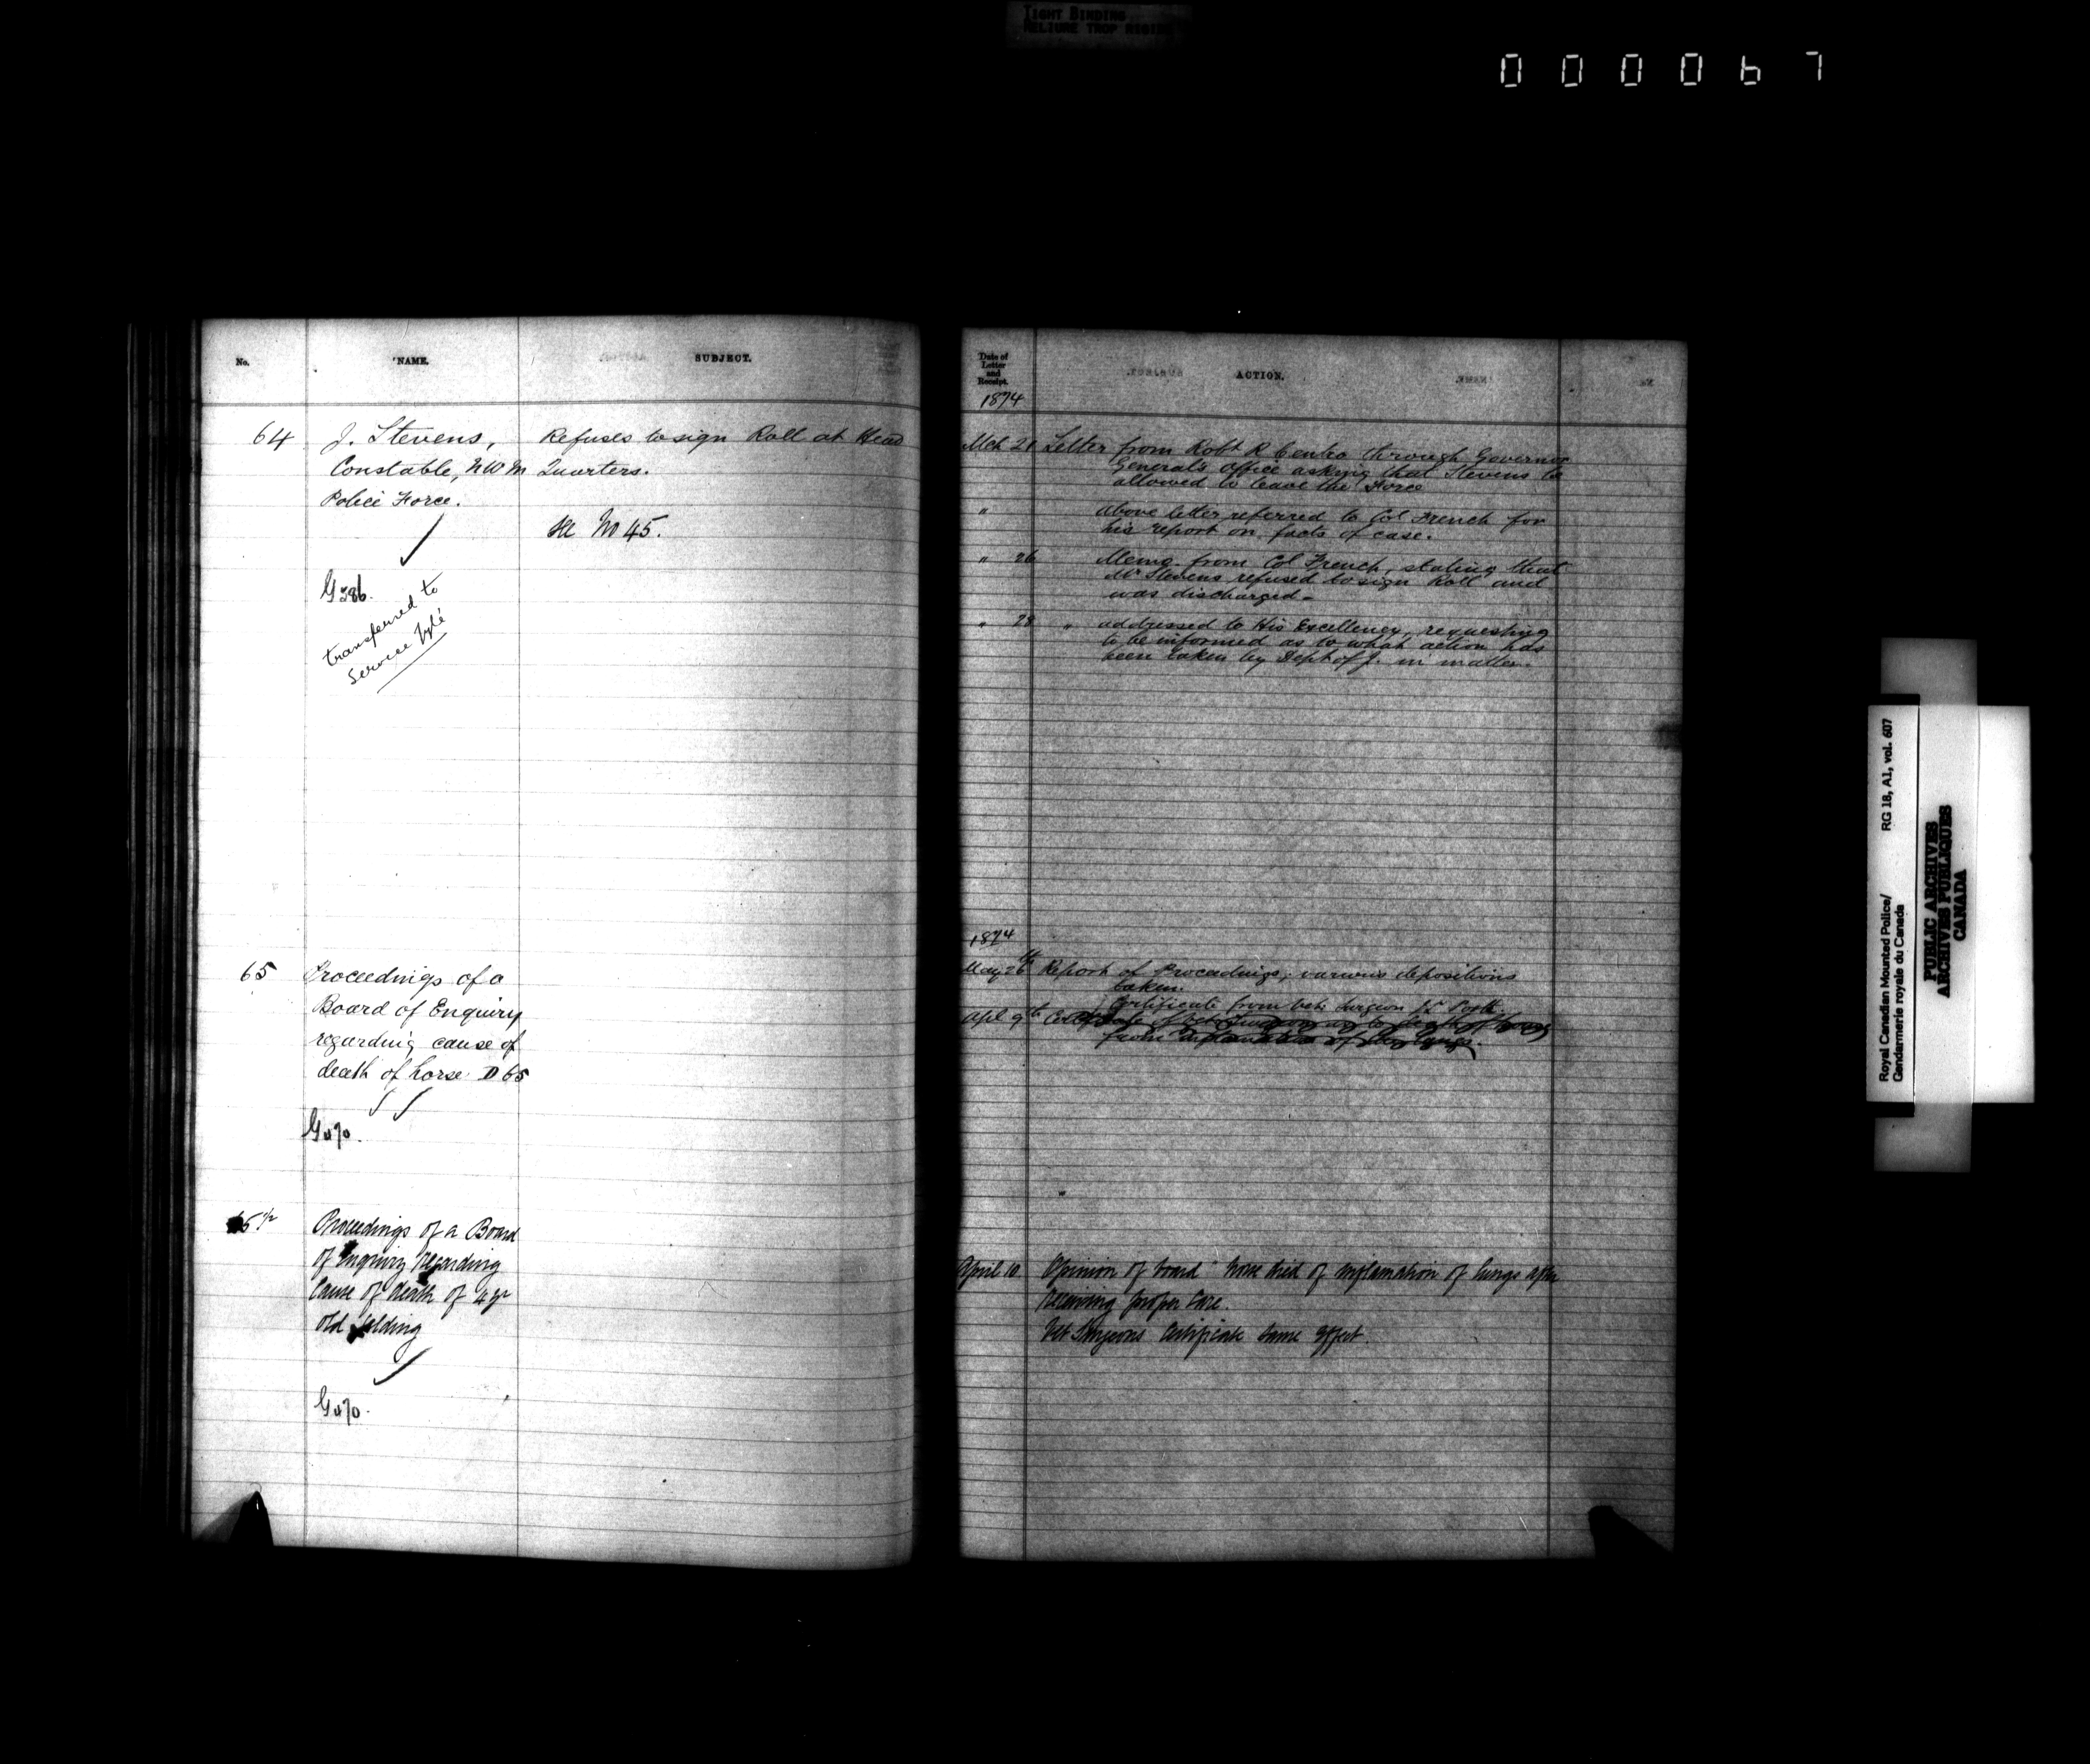 TIGHT BINDING
RELIURE TROP
000067
No.
NAME.
SUBJECT.
64
J. Stevens,
Constable, N W M
Police Force.
G 386.
transferred to
Service file
Refuses to sign Roll at Head
Quarters.
See No 45.
65
Proceedings of a
Board of Enquiry
regarding cause of
death of horse D 65
65 1/2
Proceedings of a Board
of Enquiry regarding
Cause of death of 4 yr
old Gelding
Date of
Letter
and
Receipt.
ACTION.
1874
Mch 21 Letter from Robt R through Governor
General's office asking that Stevens be
allowed to leave the Force
" above letter referred to Col French for
his report on facts of case.
" 26 Memo from Col French, stating that
Mr Stevens refused to sign Roll and
was discharged -
" 28 " addressed to His Excellency, requesting
to be informed as to what action has
been taken by Dept of J. in matter.
1874
May 26th Report of Proceedings, various depositions
taken.
Certificate from Vet. Surgeon
Apl 9th Certificate of Vet. Surgeon as to death of horse
from inflamation of the lungs.
April 10 Opinion of board horse died of inflamation of lungs after
receiving proper care.
Vet Surgeons Certificate same effect.
Royal Canadian Mounted Police/
Gendarmerie royale du Canada
RG 18, A1, vol. 607
PUBLIC ARCHIVES
ARCHIVES PUBLIQUES
CANADA